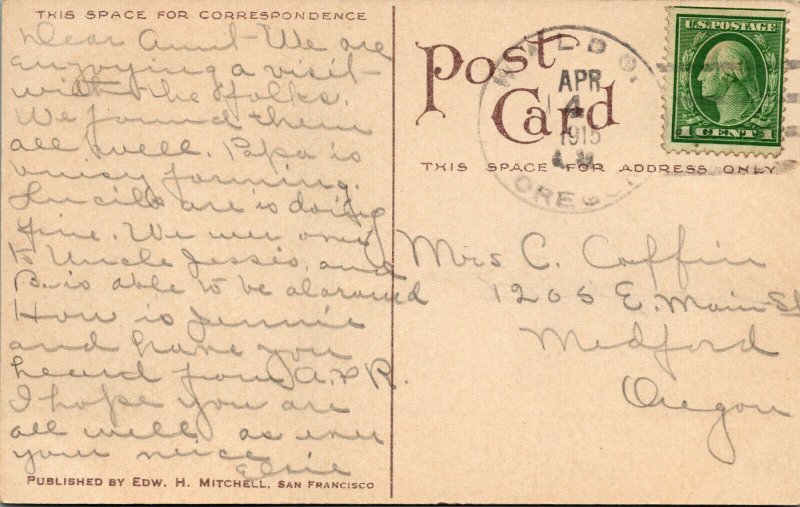 THIS SPACE FOR CORRESPONDENCE
Dear Aunt - We are
enjoying a visit
with the folks.
We found them
all well. Papa is
busy farming.
are is doing
fine. We were over
to Uncle Jessis, and
B. is able to be around
How is Jennie
and have you
heard from A. & R.
I hope you are
all well as ever
your niece
Elsie
PUBLISHED BY EDW. H. MITCHELL, SAN FRANCISCO
Post
Card
APR
4
1915
A.M.
OREGON
U.S. POSTAGE
1 CENT 1
THIS SPACE FOR ADDRESS ONLY
Mrs C. Coffin
1205 E. Main St
Medford
Oregon